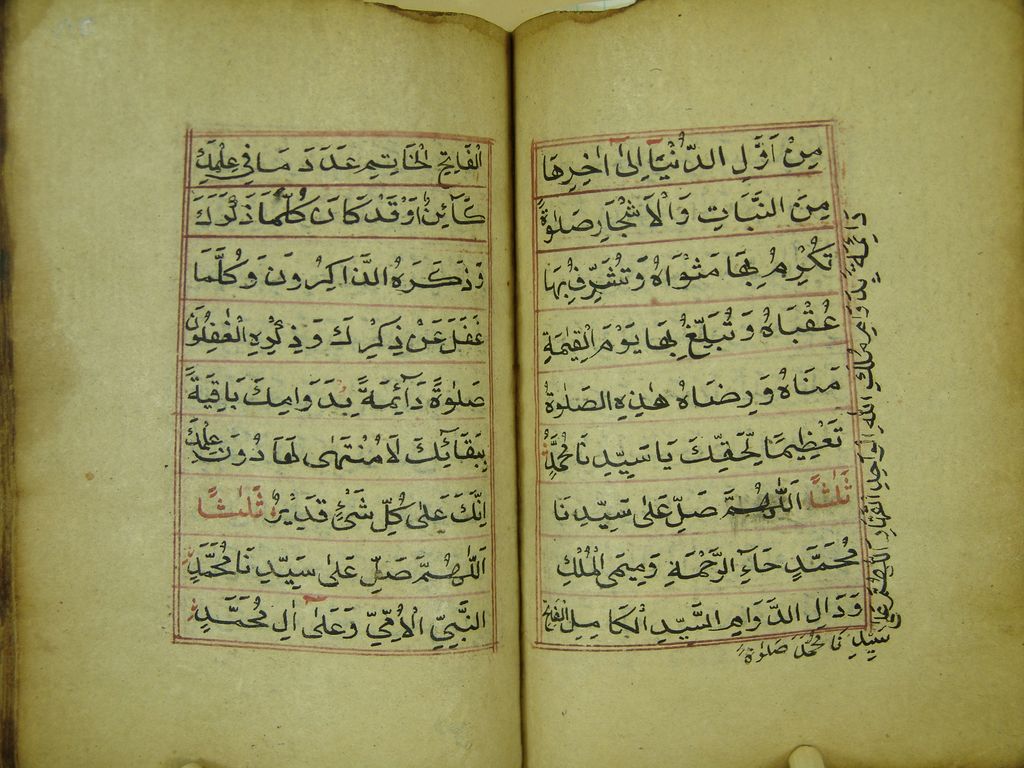 مِنْ اَوَّلِ الدُّنْيَآ اِلىٰٓ اٰخِرِهَا
مِنَ النَّبَاتِ وَالْاَشْجَارِ صَلٰوةً
تُكْرِمُ بِهَا مَثْوَاهُ وَتُشَرِّفُ بِهَا
عُقْبَاهُ وَتُبَلِّغُ بِهَا يَوْمَ الْقِيٰمَةِ
مَنَاهُ وَرِضَاهُ هٰذِهِ الصَّلٰوةُ
تَعْظِيمًا لِحَقِّكَ يَا سَيِّدِنَا مُحَمَّدٍ
ثَلٰثًا اَللّٰهُمَّ صَلِّ عَلىٰ سَيِّدِنَا
مُحَمَّدٍ حَآءِ الرَّحْمَةِ وَمِيمَىِ الْمُلْكِ
وَدَالِ الدَّوَامِ السَّيِّدِ الْكَامِلِ الْفَاتِحِ
اَللّٰهُمَّ صَلِّ عَلىٰ سَيِّدِنَا مُحَمَّدٍ صَلٰوةً
دَائِمَةً بِدَوَامِ مُلْكِ اللّٰهِ الْوَاحِدِ الْقَهَّارِ
الْفَاتِحِ الْخَاتِمِ عَدَدَ مَا فِي عِلْمِكَ
كَآئِنٌ اَوْ قَدْ كَانَ كُلَّمَا ذَكَرَكَ
وَذَكَرَهُ الذَّاكِرُونَ وَكُلَّمَا
غَفَلَ عَنْ ذِكْرِكَ وَذِكْرِهِ الْغٰفِلُونَ
صَلٰوةً دَآئِمَةً بِدَوَامِكَ بَاقِيَةً
بِبَقَآئِكَ لَا مُنْتَهٰى لَهَا دُونَ عِلْمِكَ
اِنَّكَ عَلىٰ كُلِّ شَىْءٍ قَدِيْرٌ ثَلٰثًا
اَللّٰهُمَّ صَلِّ عَلىٰ سَيِّدِنَا مُحَمَّدٍ
النَّبِيِّ الْاُمِّيِّ وَعَلىٰٓ اٰلِ مُحَمَّدٍ